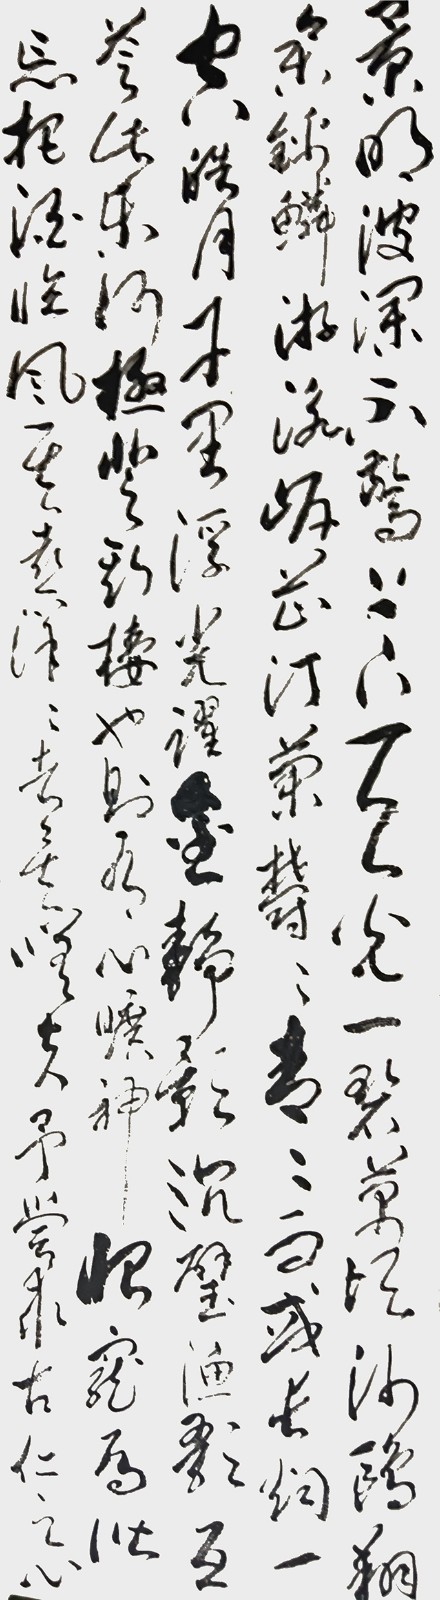 景明波瀾不驚上下天光一碧萬頃沙鷗翔
集錦鱗游泳岸芷汀蘭鬱〻青〻而或長烟一
空皓月千里浮光躍金靜影沉璧漁歌互
答此樂何極登斯樓也則有心曠神怡寵辱偕
忘把酒臨風其喜洋〻者矣嗟夫予嘗求古仁之心